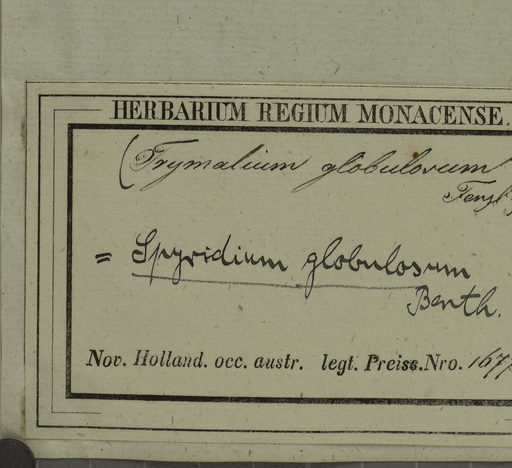 HERBARIUM REGIUM MONACENSE.
(Trymalium globulosum
Fenzl
= Spyridium globulosum
Benth.
Nov. Holland. occ. austr. legt. Preiss. Nro. 1677